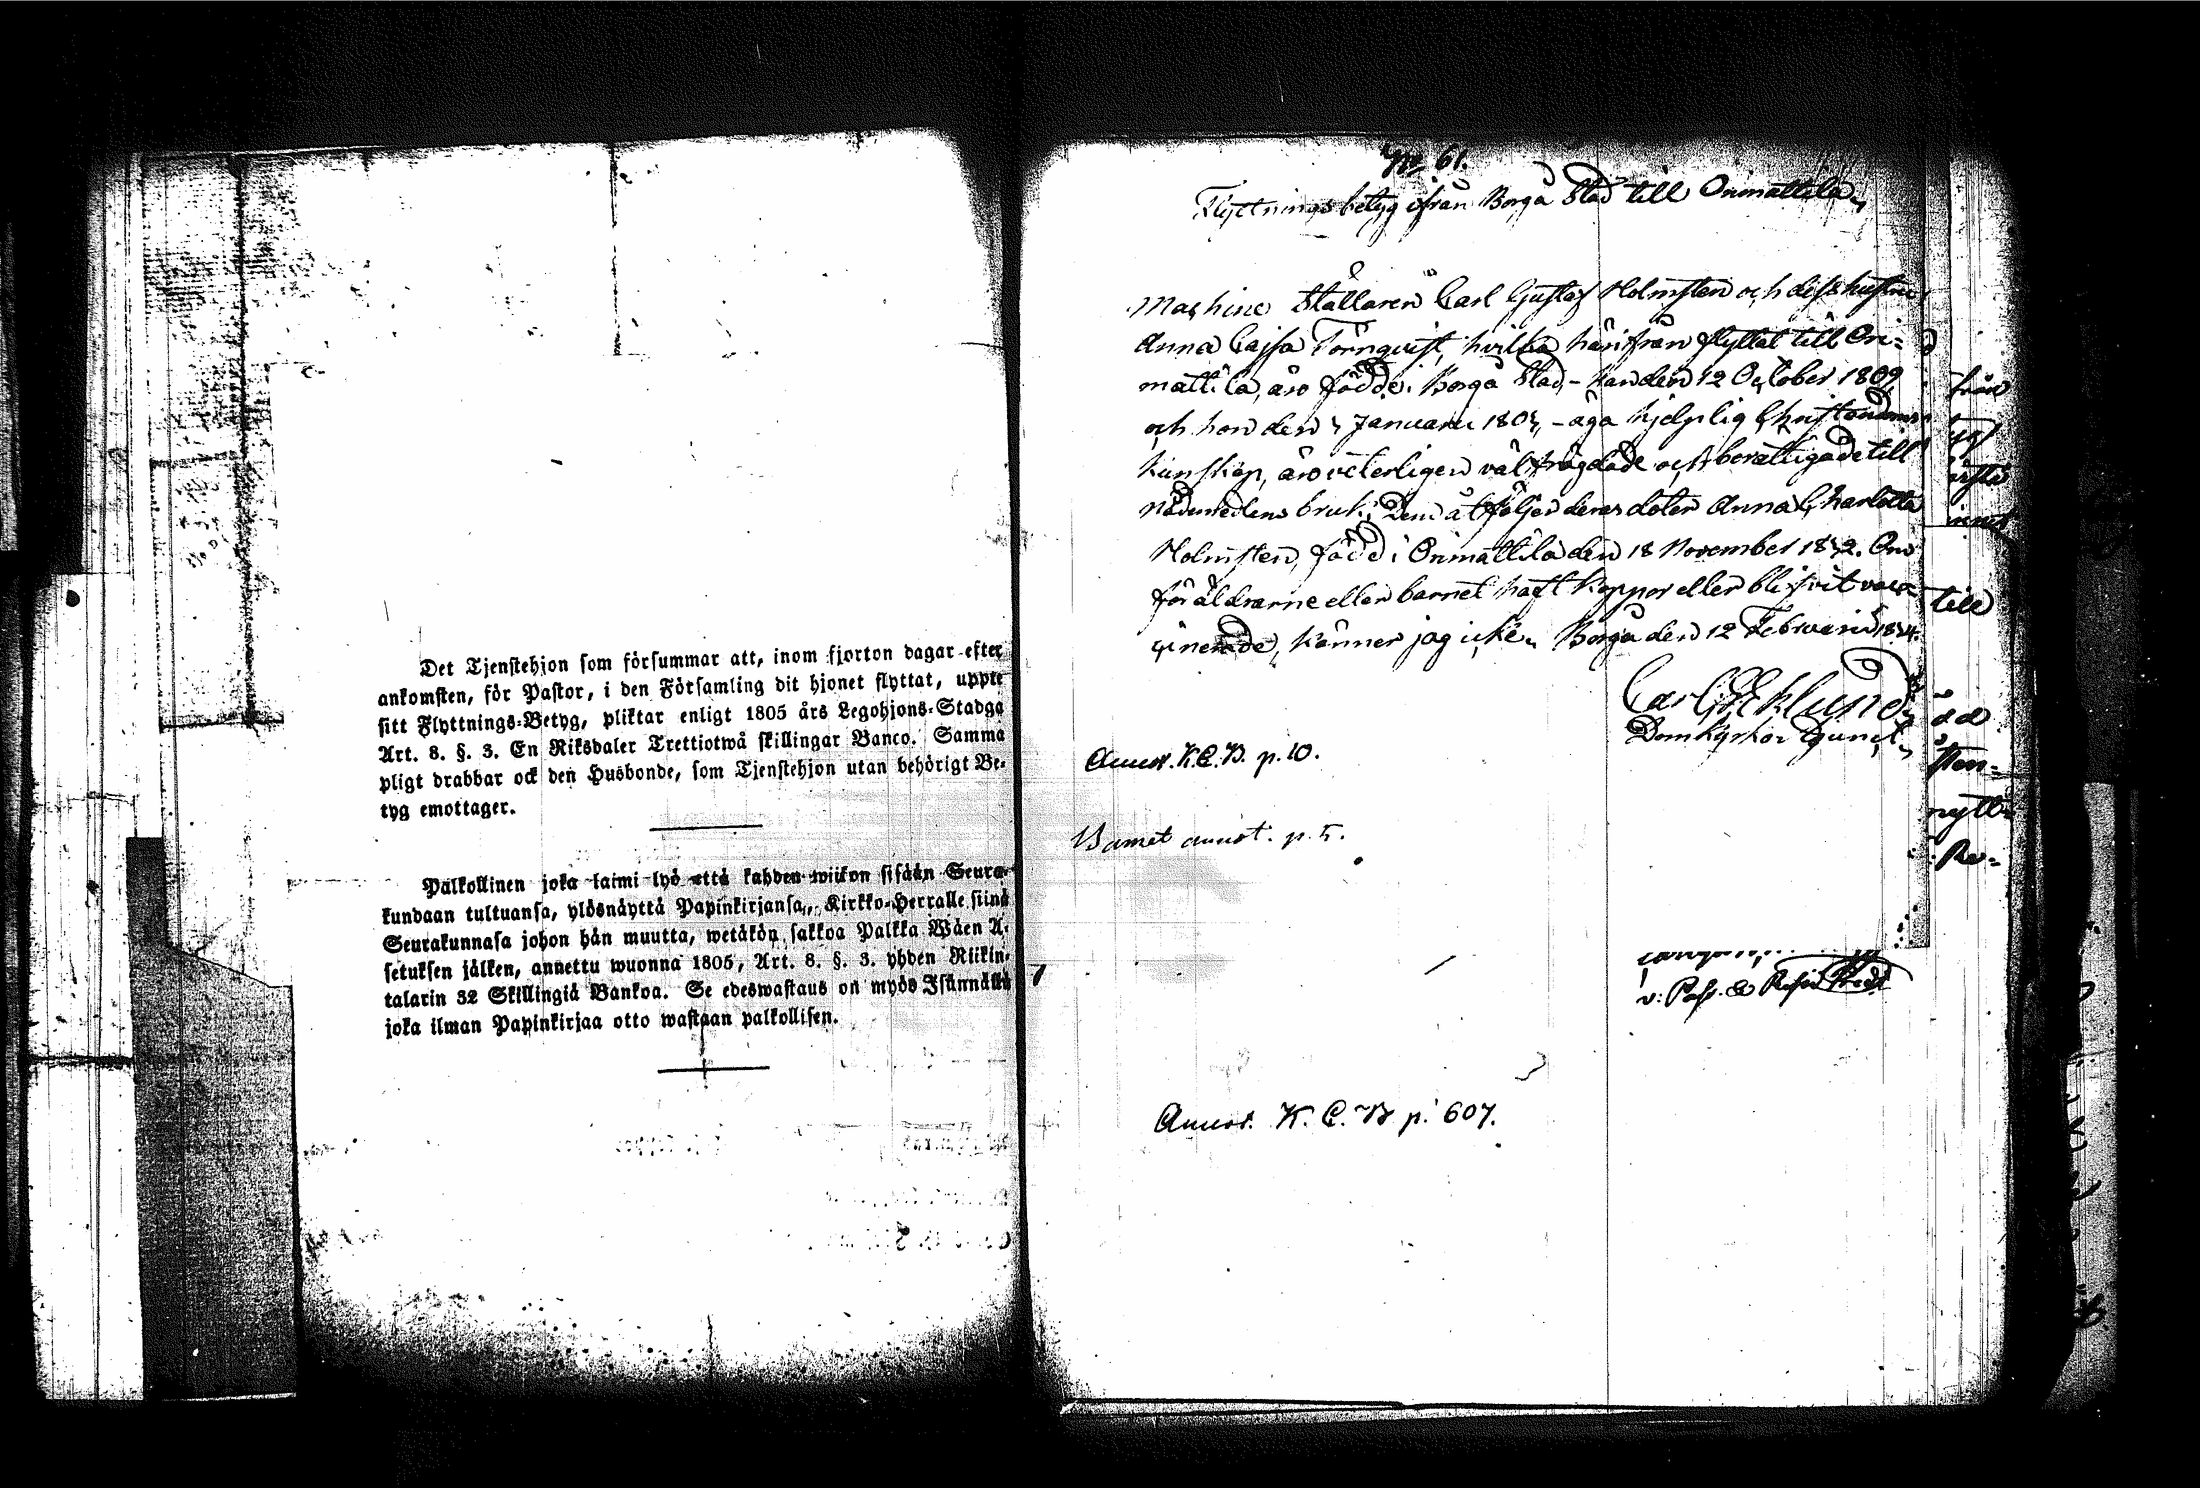 Det Tjenstehjon som försummar att, inom fjorton dagar efter
ankomsten, för Pastor, i den Församling dit hjonet flyttat, uppte
sitt Flyttnings-Betyg, pliktar enligt 1805 års Legohjons-Stadga
Art. 8. §. 3. En Riksdaler Trettiotwå skillingar Banco. Samma
pligt drabbar ock den Husbonde, som Tjenstehjon utan behörigt Be-
tyg emottager.
Palkollinen joka laimi lyö että kahden wiikon sisään Seura-
kundaan tultuansa, ylösnäyttä Papinkirjansa, Kirkko-Herralle siinä
Seurakunnasa johon hän muutta, wetäkön sakkoa Palkka Wäen A-
setuksen jälken, annettu wuonna 1805, Art. 8. §. 3. yhden Riikin-
talarin 32 Skillingiä Bankoa. Se edeswastaus on myös Isännällä
joka ilman Papinkirjaa otto wastaan palkollisen.
No 61.
Flyttnings betyg ifrån Borgå Stad till Orimattila,
Machine Ställaren Carl Gustaf Holmsten och dess hustru
Anna Cajsa Törnqvist, hvilka härifrån flyttat till Ori-
mattila, äro födde i Borgå Stad – han den 12 October 1809
och hon den Januarii – äga hjelplig Christendoms
kunskap, äro veterligen välfrägdade och berättigade till
nådemedlens bruk. Dem åtföljer deras doter Anna Charlotta
Holmsten, född i Orimattila den 18 November 1832. Om
föräldrarne eller barnet haft koppor eller blifvit vacc-
inerade, känner jag icke. Borgå den 12 Februarii 1834.
Carl Eklund
Annot. K.C.B. p. 10.
Barnet annot. p. 5.
v. Past.
Annot. K. C. B p. 607.
från
till
öd
sten-
nytt-